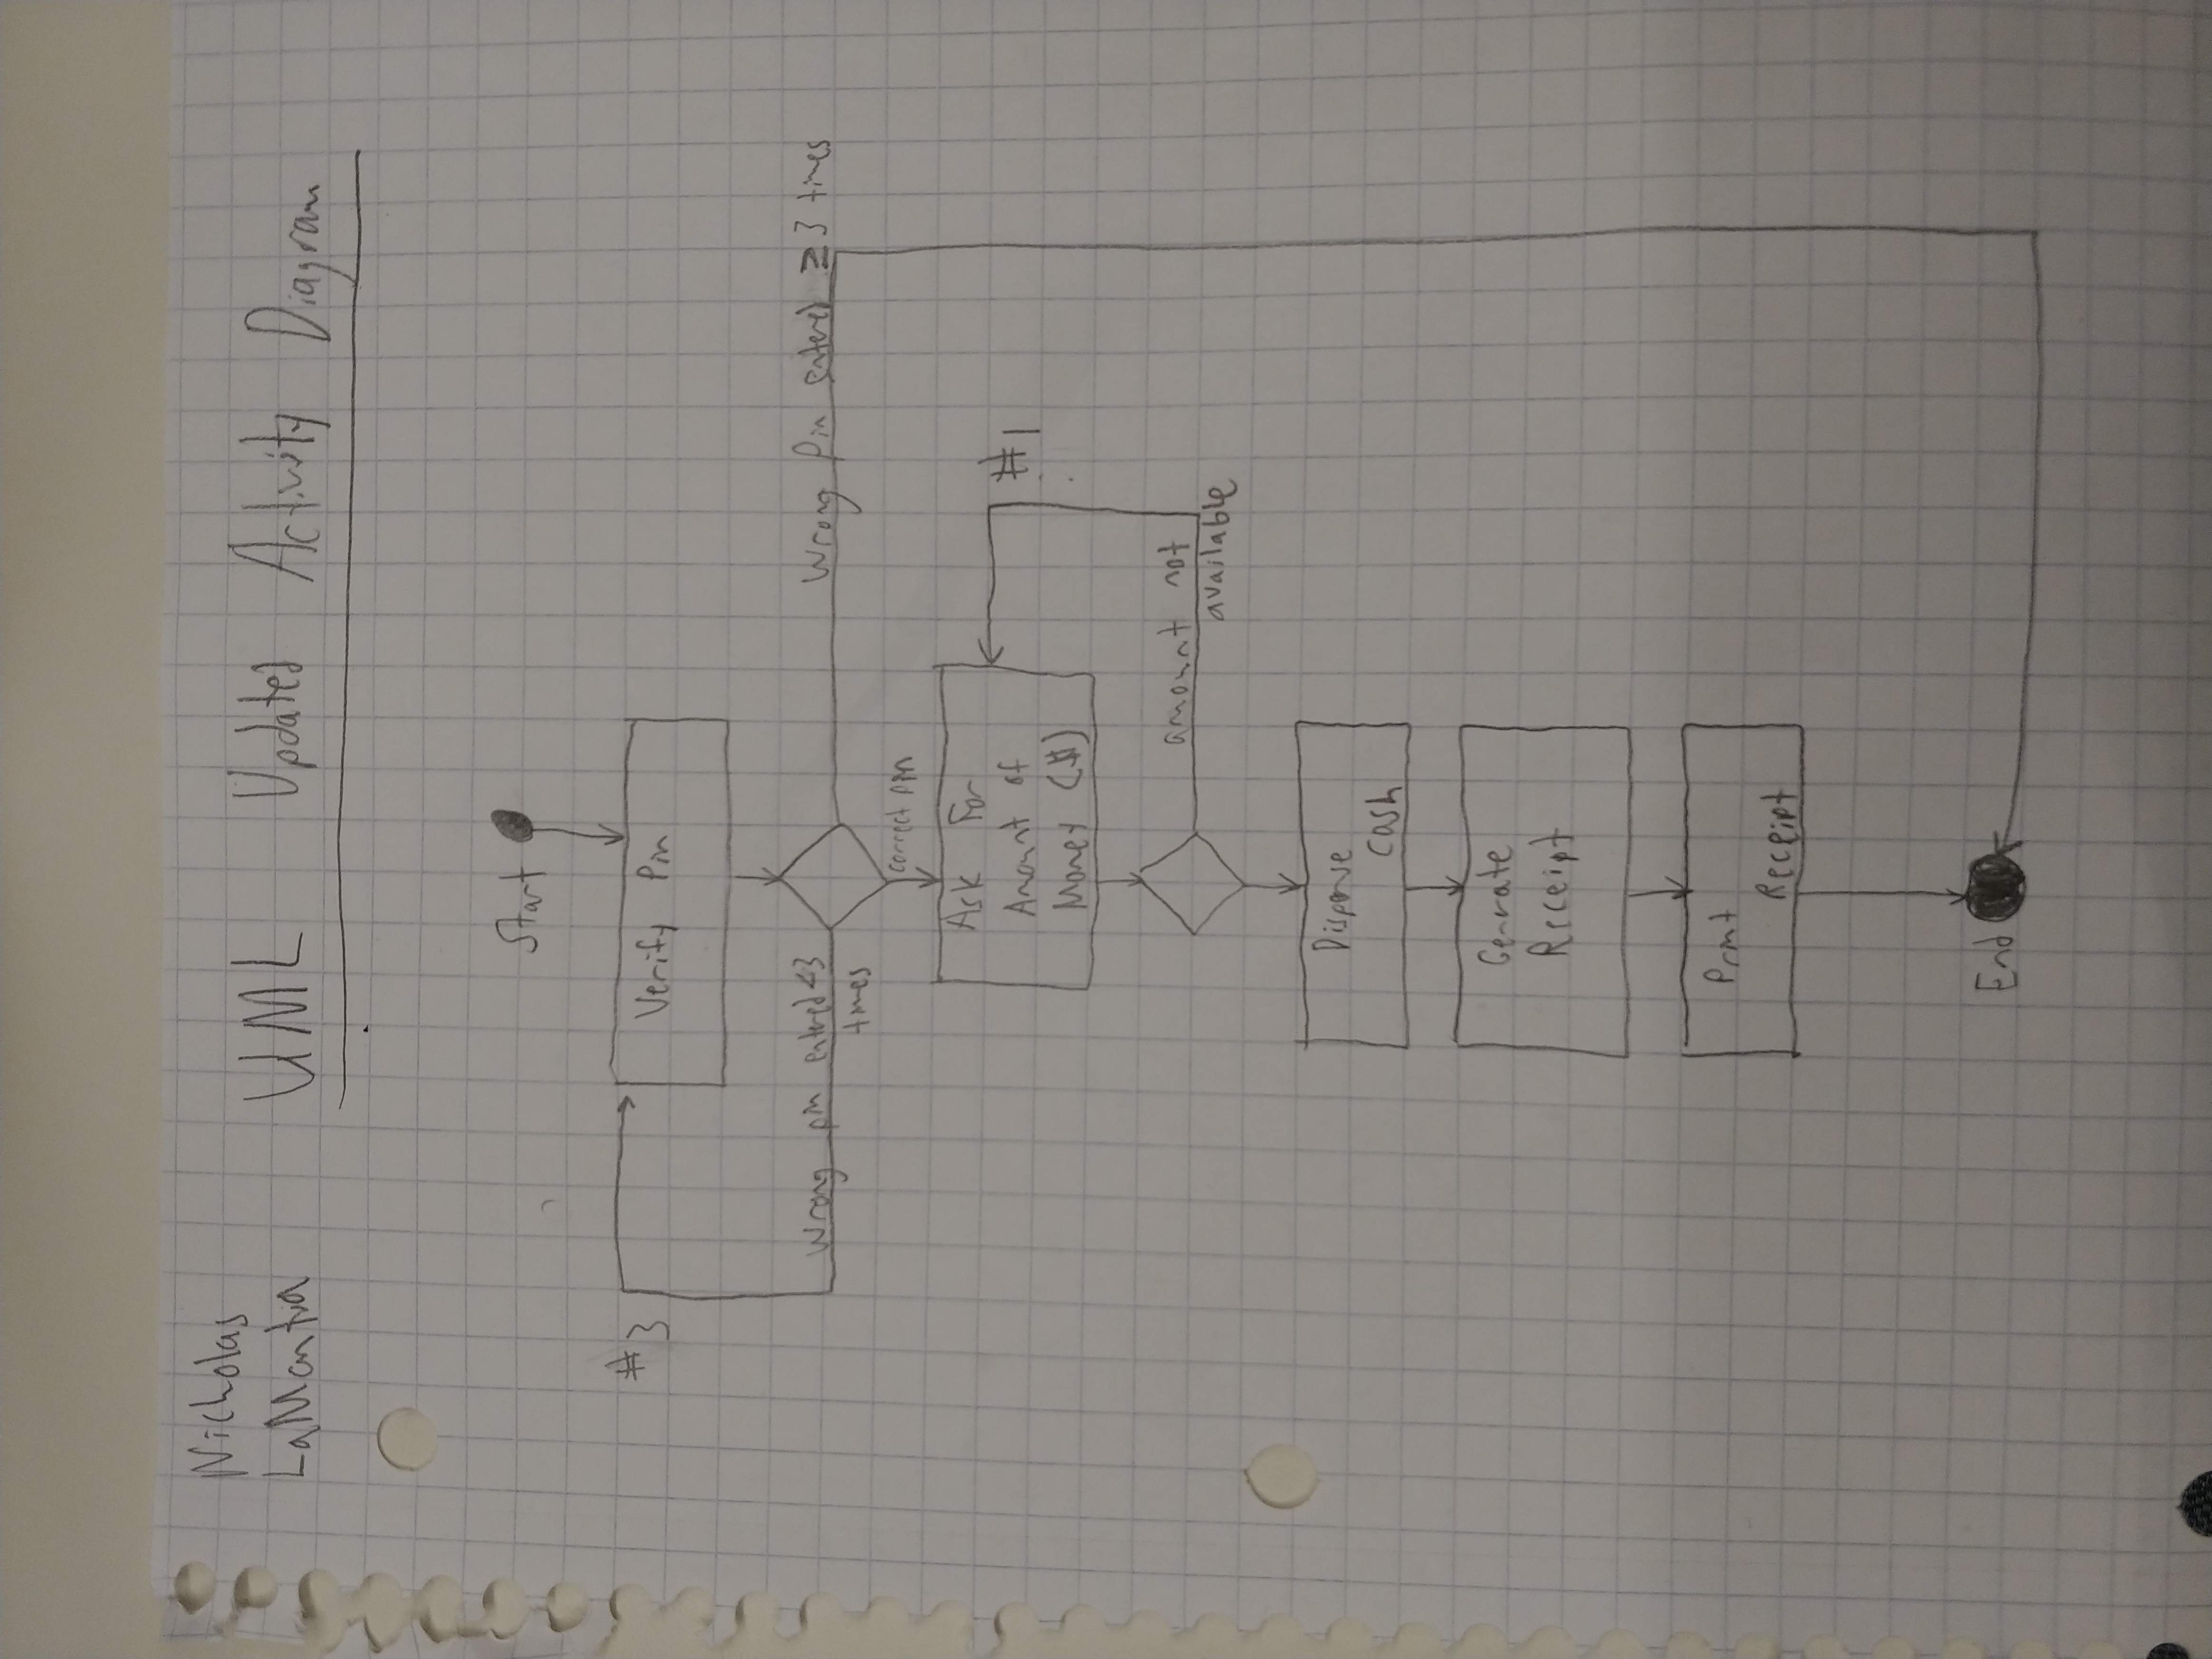 Nicholas
LaMantia
UML Updated Activity Diagram
Start
#3
Verify Pin
Wrong pin entered <3
times
Wrong Pin entered ≥ 3 times
correct pin
Ask For
Amount of
Money ($)
#1
amount not
available
Dispense
Cash
Generate
Receipt
Print
Receipt
End